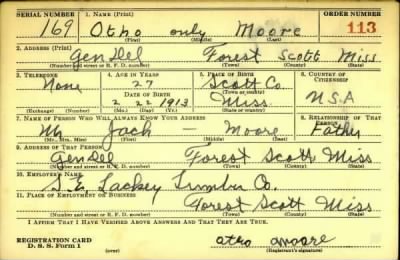 SERIAL NUMBER 1. NAME (Print) ORDER NUMBER
169 Otho only Moore 113
(First) (Middle) (Last)
2. ADDRESS (Print)
Gen Del Forest Scott Miss
(Number and street or R. F. D. number) (Town) (County) (State)
3. TELEPHONE 4. AGE IN YEARS 5. PLACE OF BIRTH 6. COUNTRY OF CITIZENSHIP
None 27 Scott Co.
DATE OF BIRTH (Town or county)
2 22 1913 Miss U.S.A
(Exchange) (Number) (Mo.) (Day) (Yr.) (State or country)
7. NAME OF PERSON WHO WILL ALWAYS KNOW YOUR ADDRESS 8. RELATIONSHIP OF THAT PERSON
Mr Jack — Moore Father
(Mr., Mrs., Miss) (First) (Middle) (Last)
9. ADDRESS OF THAT PERSON
Gen Del Forest Scott Miss
(Number and street or R. F. D. number) (Town) (County) (State)
10. EMPLOYER'S NAME
Lackey Co.
11. PLACE OF EMPLOYMENT OR BUSINESS
Forest Scott Miss
(Number and street or R. F. D. number) (Town) (County) (State)
I AFFIRM THAT I HAVE VERIFIED ABOVE ANSWERS AND THAT THEY ARE TRUE.
REGISTRATION CARD
D. S. S. Form 1 (over) otho moore
(Registrant's signature)